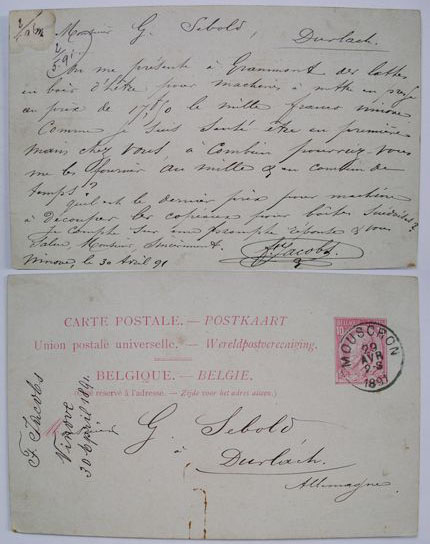 Monsieur G. Sebold, Durlach.
2/5.91.
On me présente à Grammont des lattes
en bois d'hêtre pour machines à
au prix de le mille franco Ninove
Comme je suis être en première
mains chez vous, à combien pourrez vous
me les fournir au mille & en combien de
temps?
quel est le dernier prix pour machine
à découper les copeaux pour boîtes suédoises?
Je compte sur une réponse & vous
salue, Monsieur, sincèrement.
Ninove, le 30 Avril 91
F. Jacobs
CARTE POSTALE. — POSTKAART
Union postale universelle. — Wereldpostvereeniging.
BELGIQUE. — BELGIE.
réservé à l'adresse. — Zijde voor het adres alleen.)
MOUSCRON
29
AVR
1891
BELGIQUE
10
G. Sebold
à
Durlach.
Allemagne.
F. Jacobs
Ninove
30 April 1891.